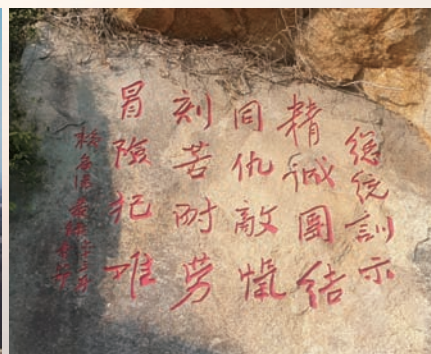 總統訓示
精誠團結
同仇敵愾
刻苦耐勞
冒險犯難